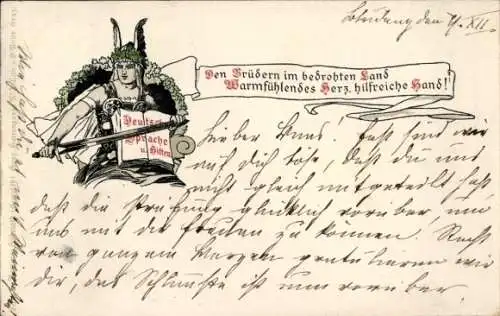 den 4. XII.
Den Brüdern im bedrohten Land
Warmfühlendes Herz, hilfreiche Hand!
Deutsche
Sprache
u. Sitten
Lieber Hans! Fast sind wir
auf dich böse, daß du uns
nicht gleich mitgeteilt hast,
daß die Prüfung glücklich vorüber, um
uns mit dir freuen zu können. Recht
von ganzem Herzen gratulieren wir
dir, das Schlimmste ist nun vorüber